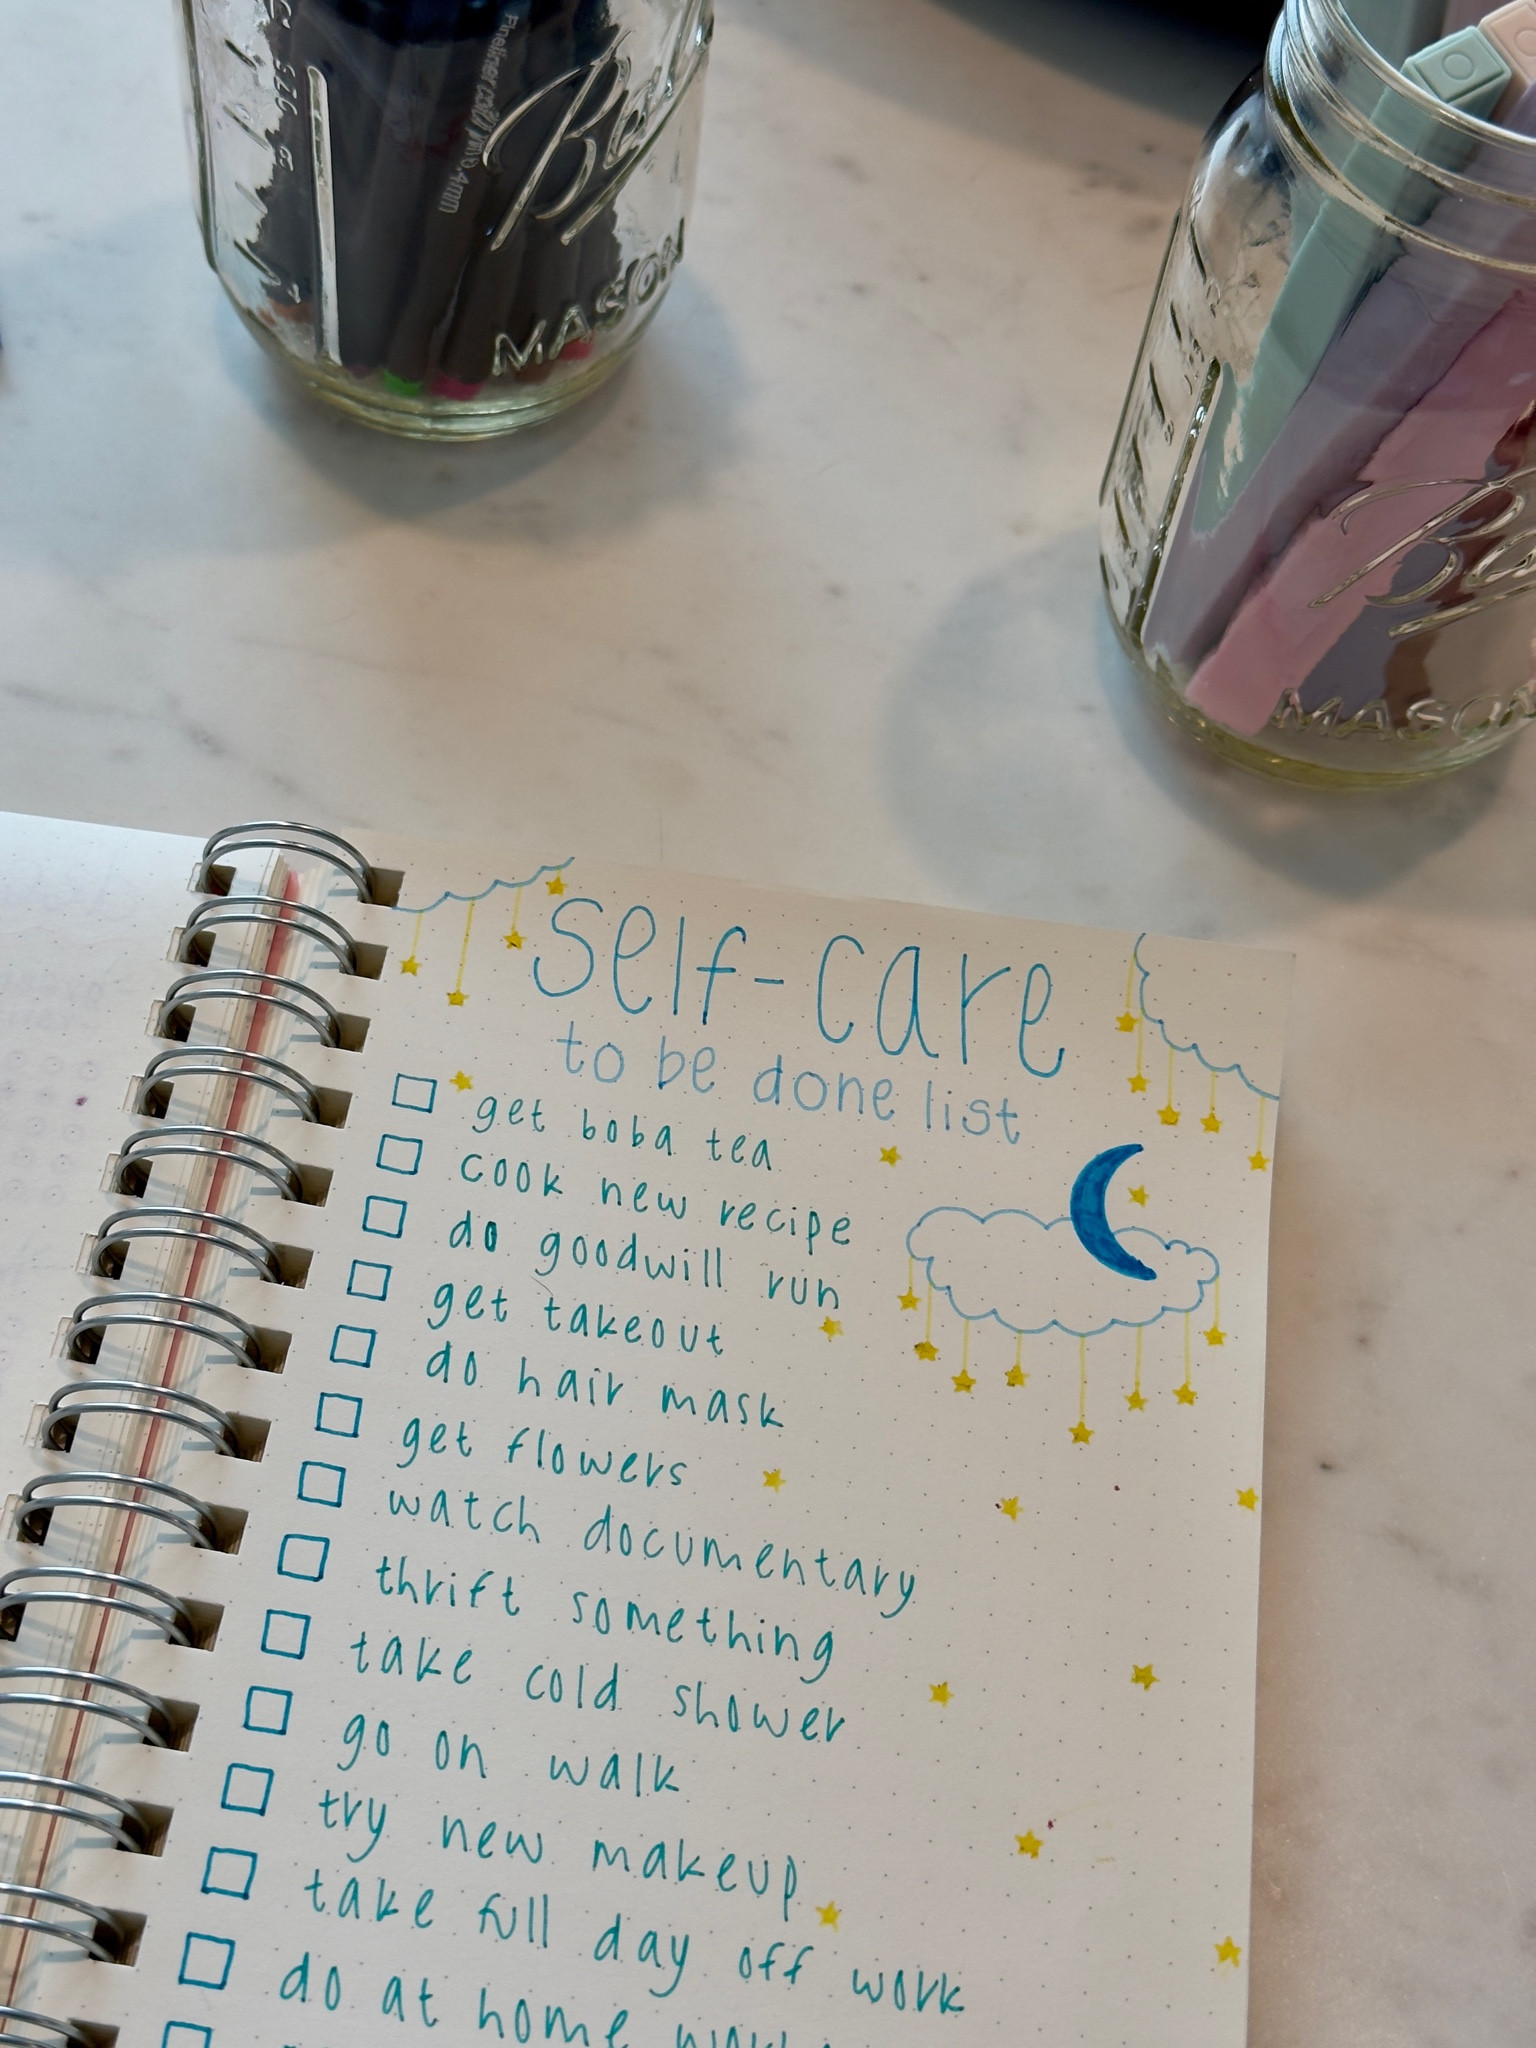 Fineliner color pen 0.4mm
Ball
MASON
Ba
MASON
self-care
to be done list
get boba tea
cook new recipe
do goodwill run
get takeout
do hair mask
get flowers
watch documentary
thrift something
take cold shower
go on walk
try new makeup
take full day off work
do at home